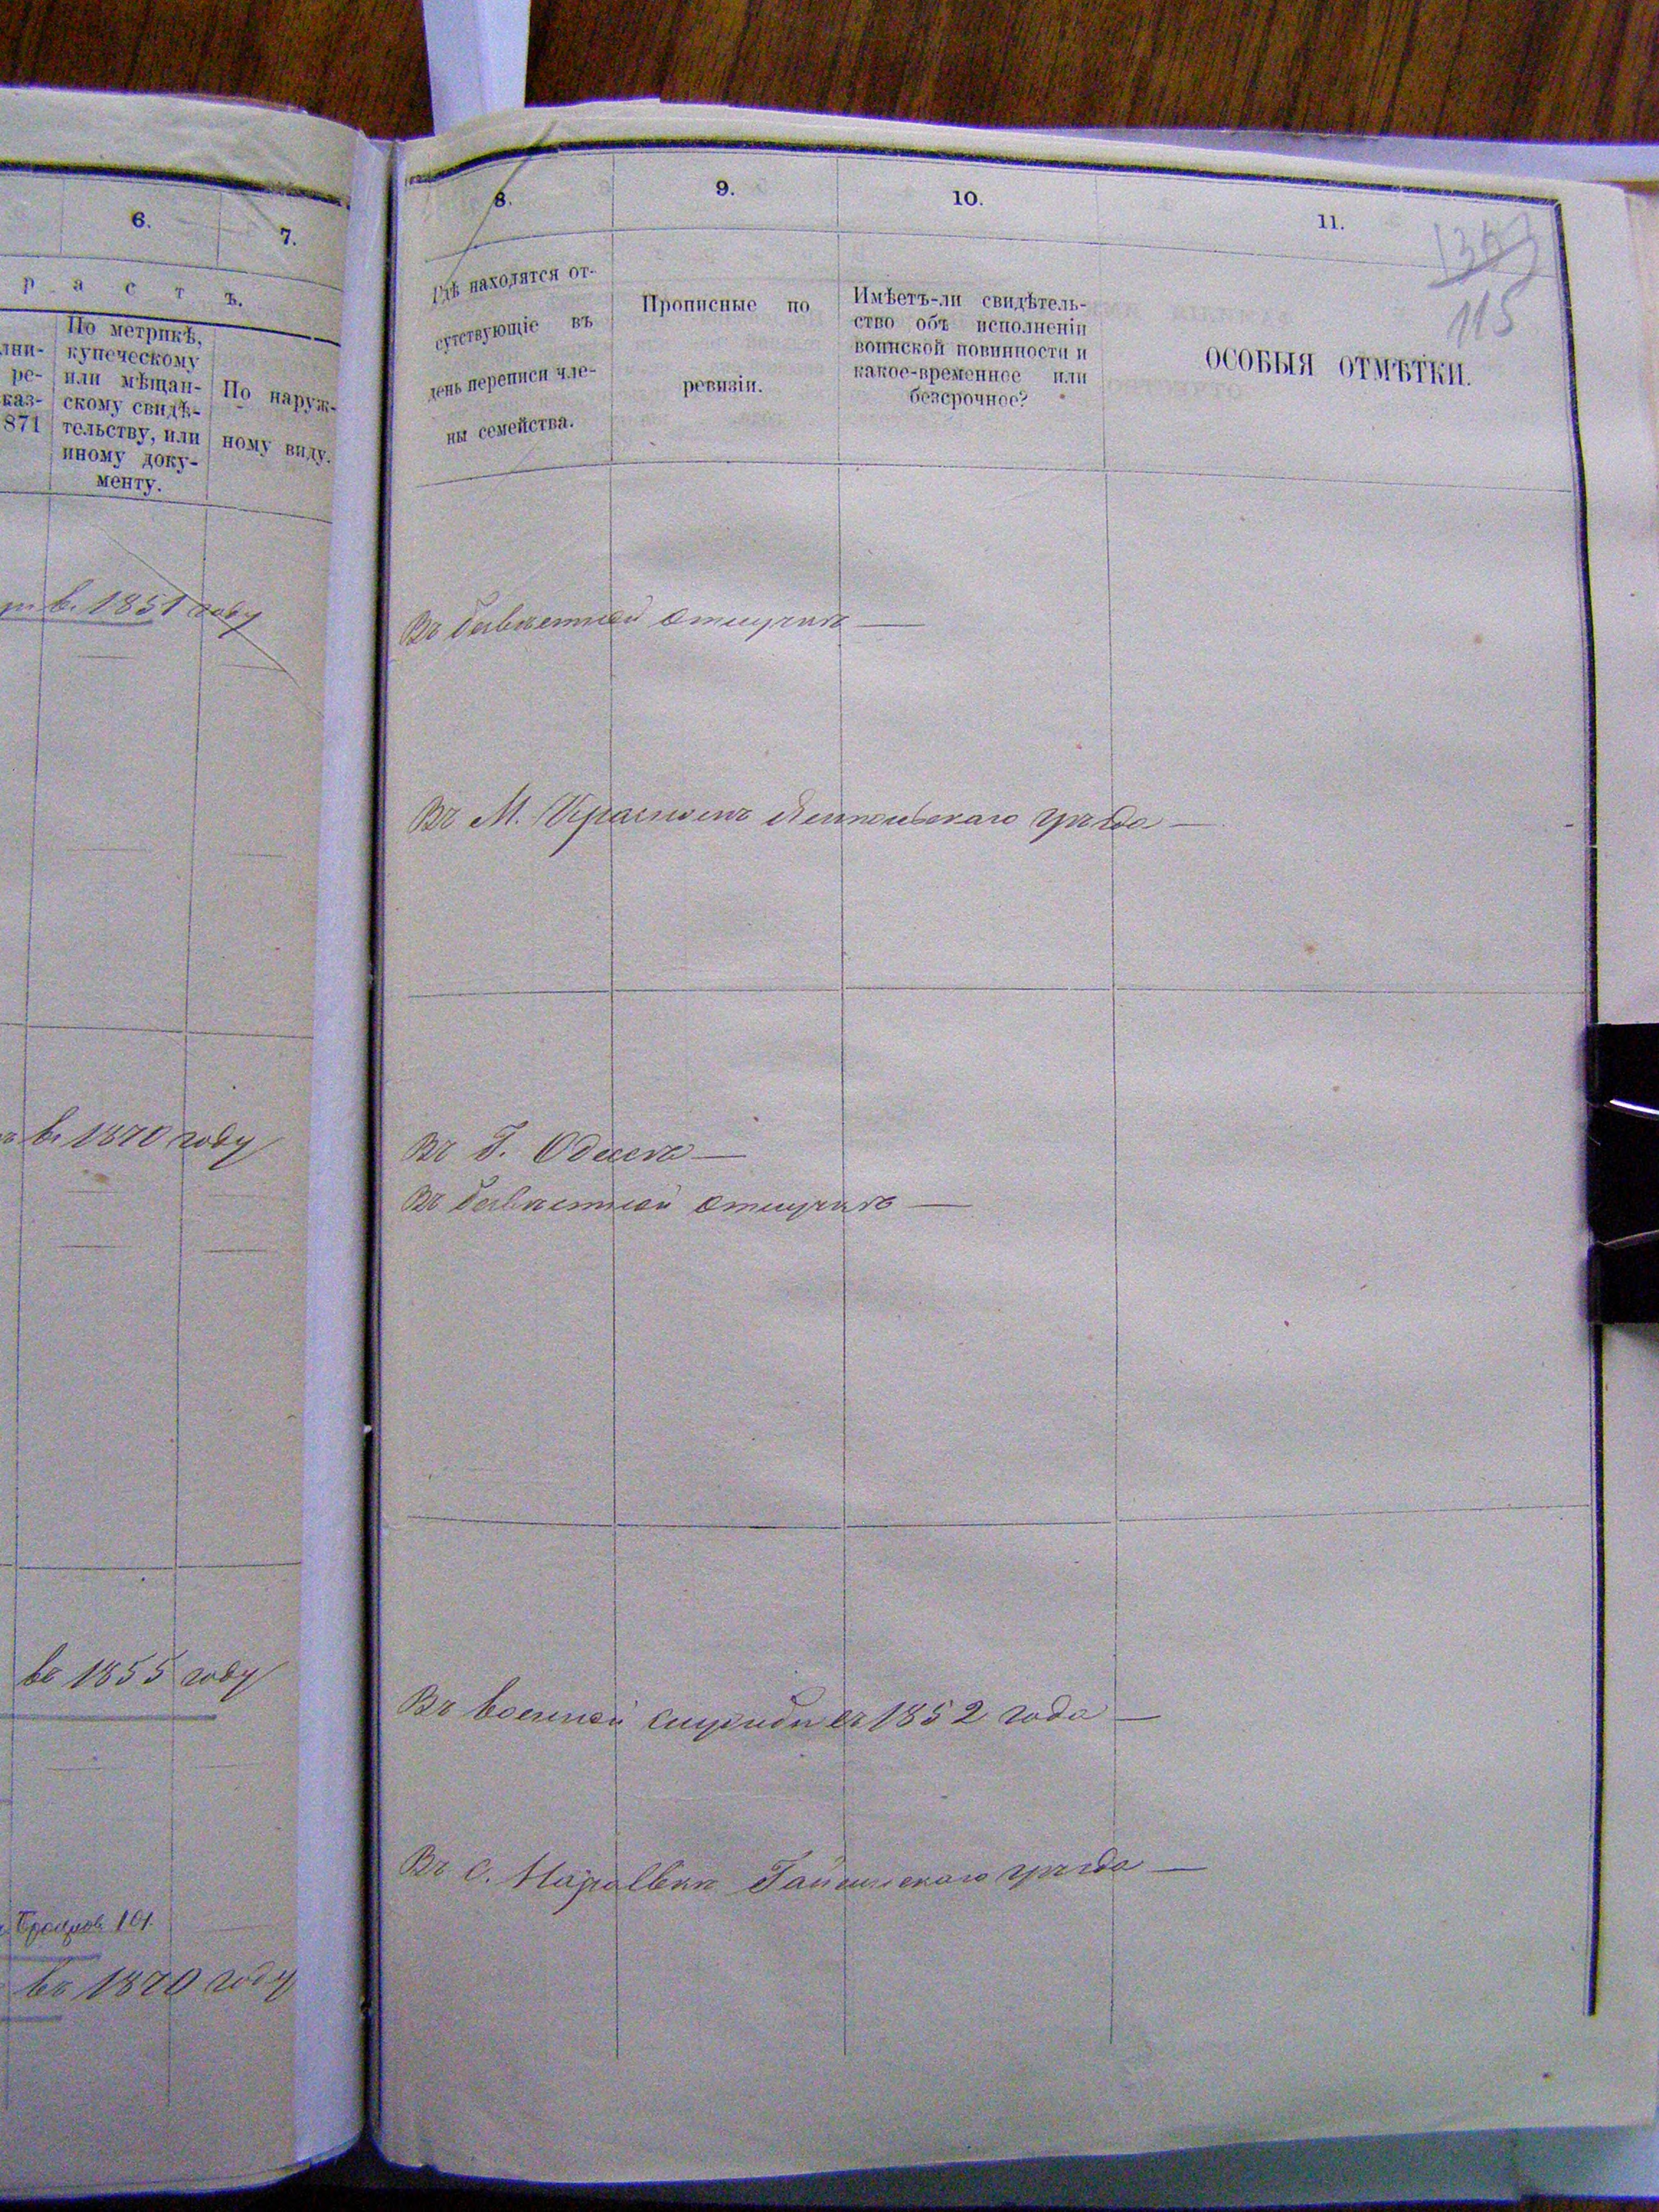 6.
7.
р а с т ъ.
лни-
ре-
каз-
871
По метрикѣ,
купеческому
или мѣщан-
скому свидѣ-
тельству, или
иному доку-
менту.
По наруж-
ному виду.
въ 1851 году
въ 1870 году
въ 1855 году
101
въ 1870 году
8.
9.
10.
11.
135
115
Гдѣ находятся от-
сутствующіе въ
день переписи чле-
ны семейства.
Прописные по
ревизіи.
Имѣетъ-ли свидѣтель-
ство объ исполненіи
воинской повинности и
какое-временное или
безсрочное?
ОСОБЫЯ ОТМѢТКИ.
Въ безвѣстной отлучкѣ —
Въ М. Красномъ Ямпольскаго уѣзда —
Въ Г. Одессѣ —
Въ безвѣстной отлучкѣ —
Въ военной службѣ съ 1852 года —
Въ с. Гайсинскаго уѣзда —